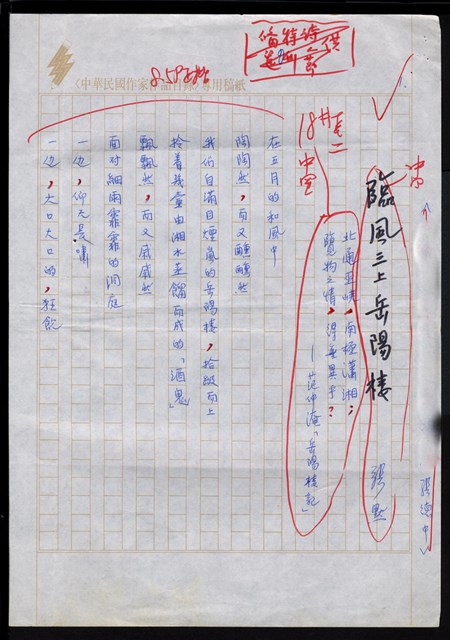 〈中華民國作家作品目錄〉專用稿紙
臨風三上岳陽樓
張默
北通巫峽，南極瀟湘；
覽物之情，得無異乎？
—范仲淹「岳陽樓記」
18#
中空
在五月的和風中
陶陶然，而又醺醺然
我们自滿目煙嵐的岳陽樓，拾級而上
拎着幾壺由湘水蒸餾而成的「酒鬼」
飄飄然，而又戚戚然
面对細雨霏霏的洞庭
一边，仰天長嘯
一边，大口大口的，狂飲